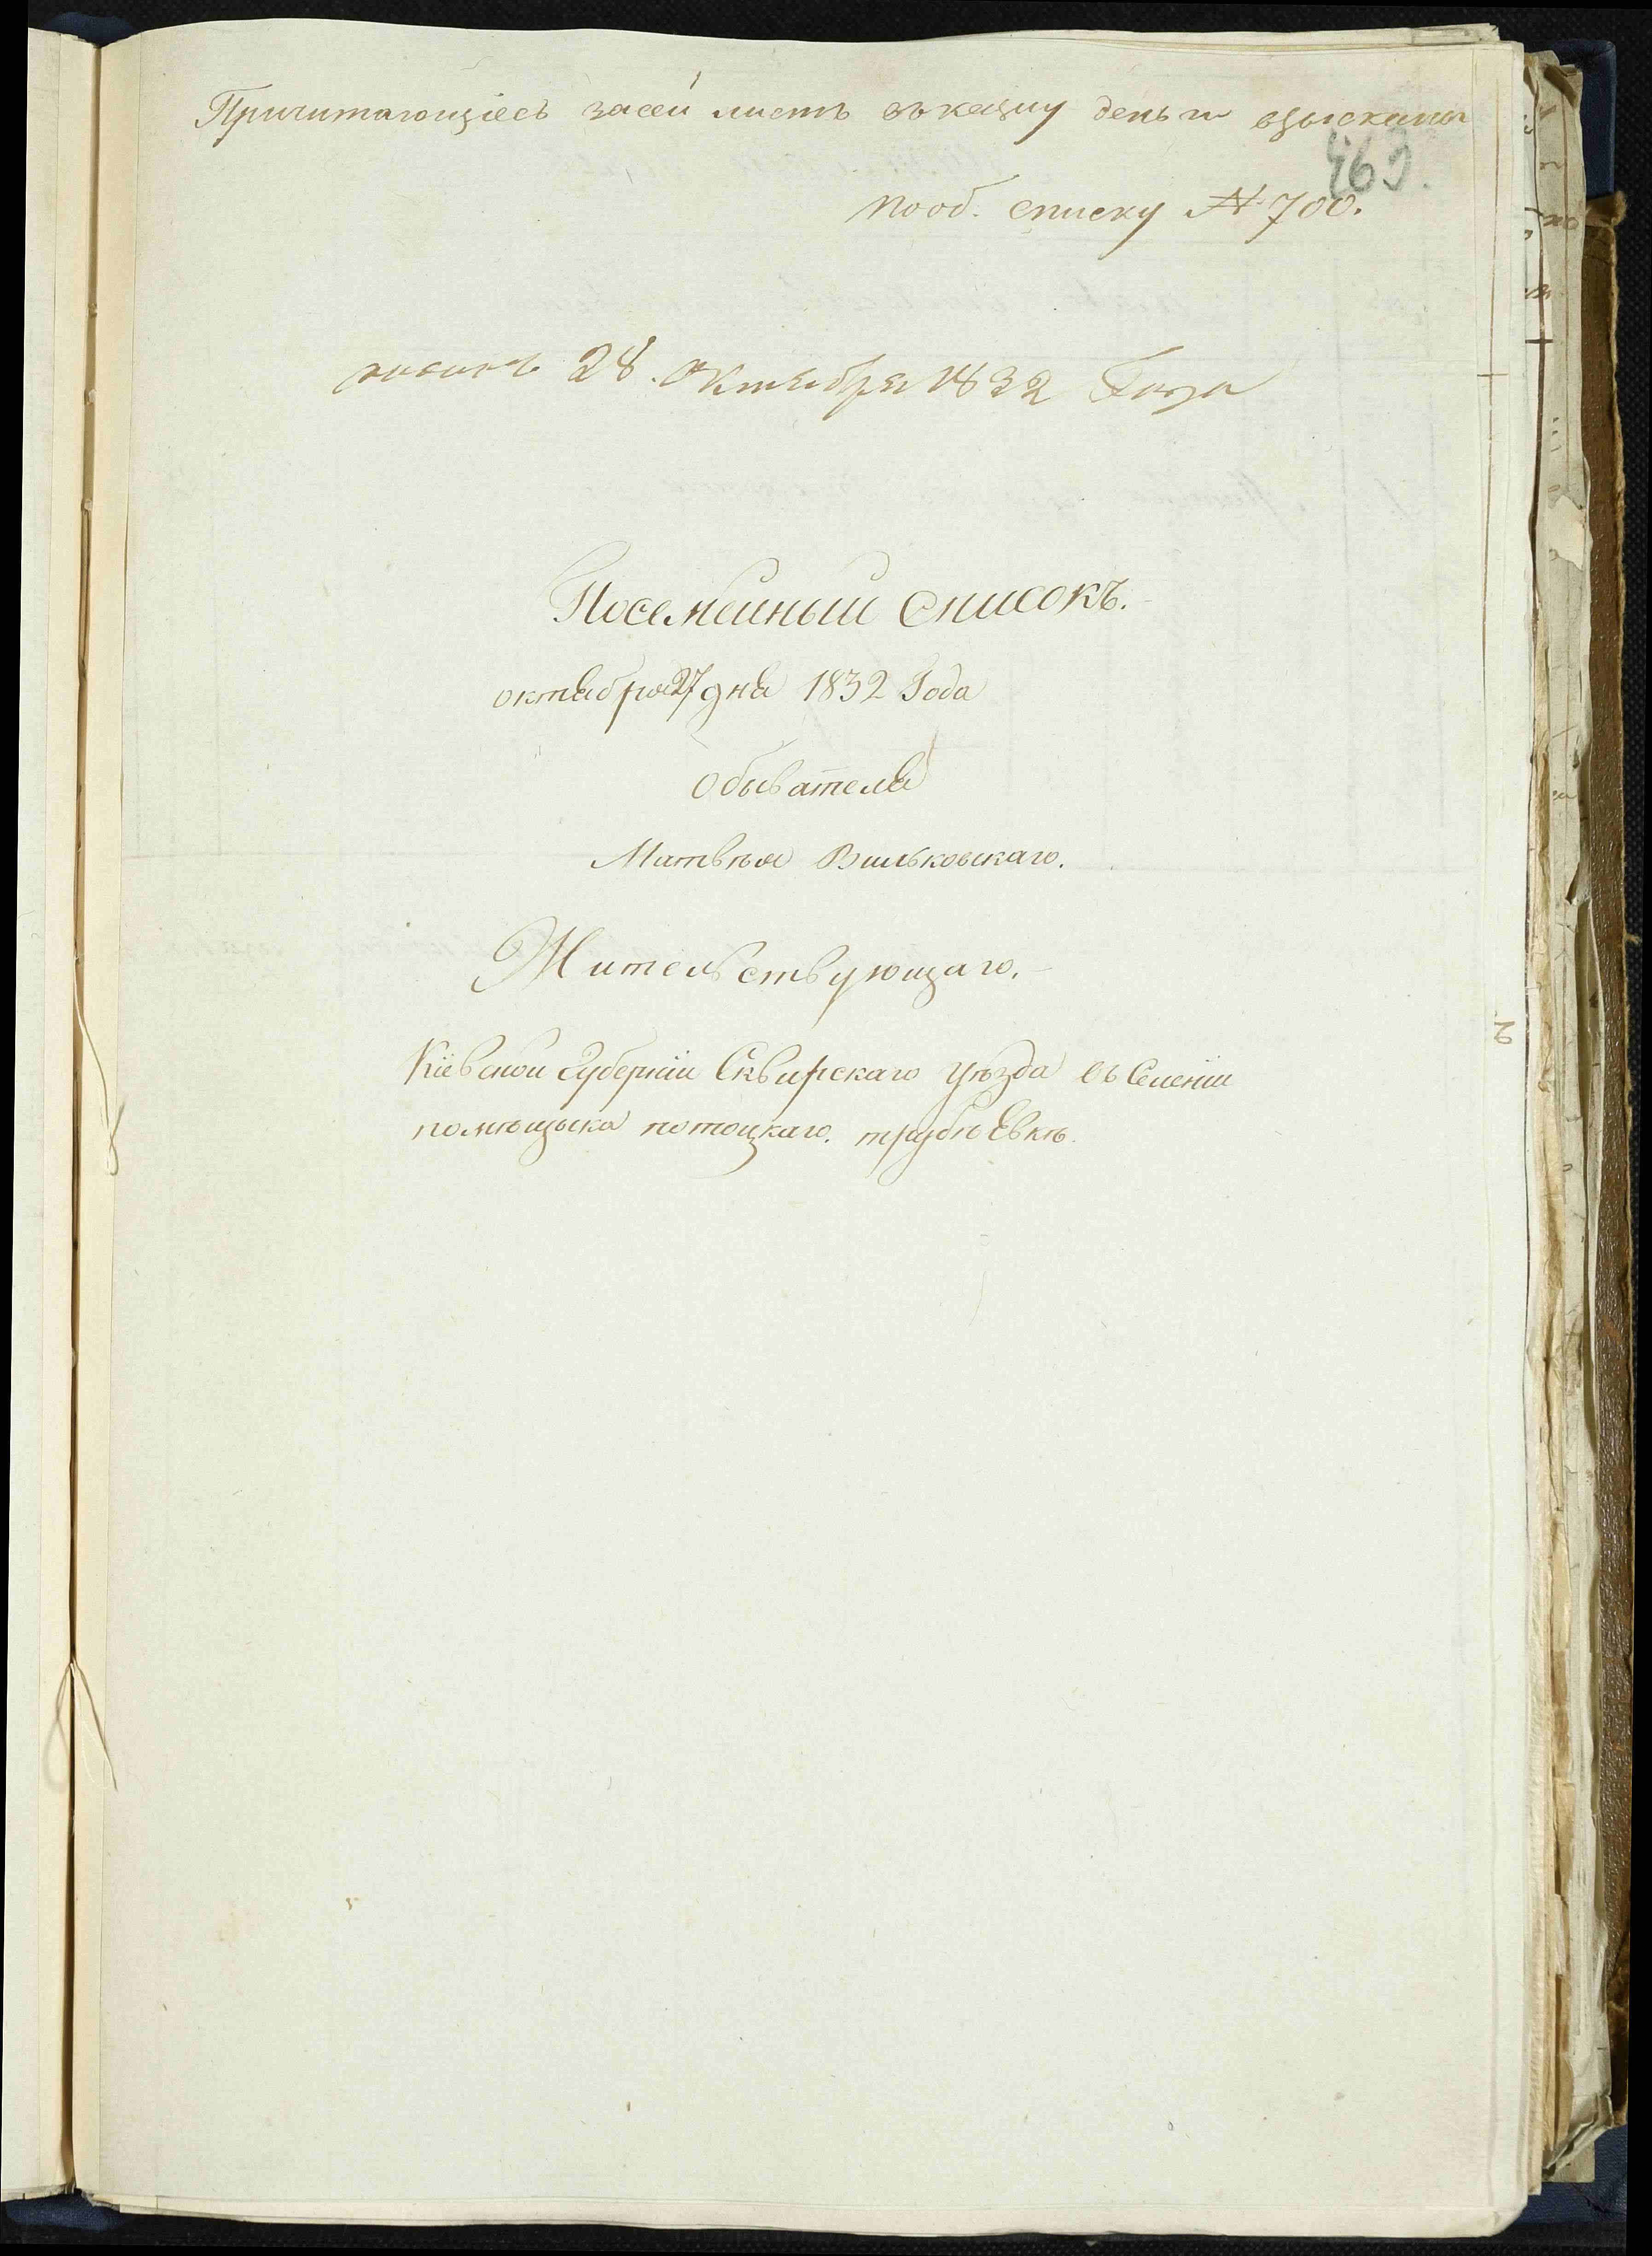 Причитающіесъ засей листъ въказну деньги взысканы
469.
пооб. списку № 700.
28. Октября 1832 Года
Посемейный Списокъ.
октября 27 дня 1832 Года
Обывателя
Матвѣя Вильковскаго.
Жительствующаго.
Кіевской Губерніи Сквирскаго уѣзда въ Селеніи
помѣщыка потоцкаго. трубѣевкѣ.